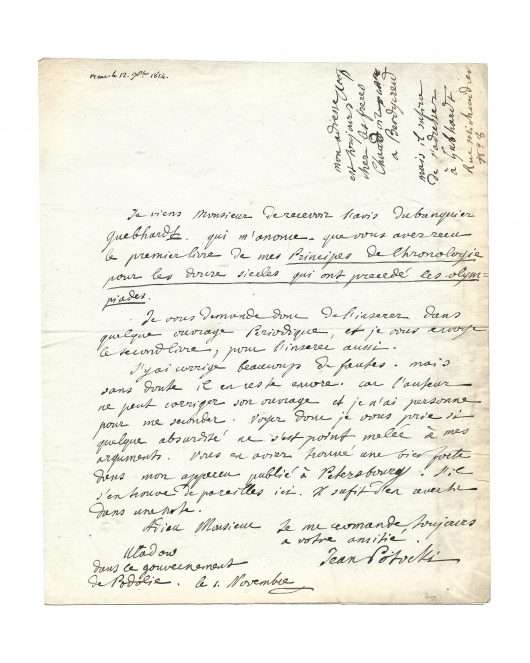 recu le 12. 9bre 1814.
mon adresse
est toujours
chez les freres
Chaudoir
a Berdyczew
mais il sufira
de l'adresser
à Guebhardt
Je viens Monsieur de recevoir l'avis du banquier
Guebhardt. qui m'anonce. que vous avez recu
le premier livre de mes Principes de Chronologie
pour les douze siecles qui ont precedé les olym-
piades.
Je vous demande donc de l'inserer dans
quelque ouvrage Periodique, et je vous envoye
le second livre, pour l'inserer aussi.
J'y ai corrigé beaucoup de fautes. mais
sans doute il en reste encore. car l'auteur
ne peut corriger son ouvrage et je n'ai personne
pour me seconder. Voyez donc je vous prie si
quelque absurdité ne s'est point melée à mes
arguments. Vous en avez trouvé une bien forte
dans mon apercu publié à Petersbourg. S'il
s'en trouve de pareilles ici. Il sufit d'en avertir
dans une note.
Adieu Monsieur Je me recomande toujours
a votre amitié.
Jean Potocki
Uladow
dans le gouvernement
de Podolie. le 1. Novembre